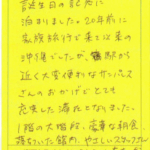 誕生日の記念に
泊まりました。20年前に
家族旅行で来て以来の
沖縄でしたが、駅から
近く大変便利なサンパレス
さんのおかげでとても
充実した滞在となりました。
1階の大浴場、豪華な朝食、
落ちついた館内、やさしいスタッフさん